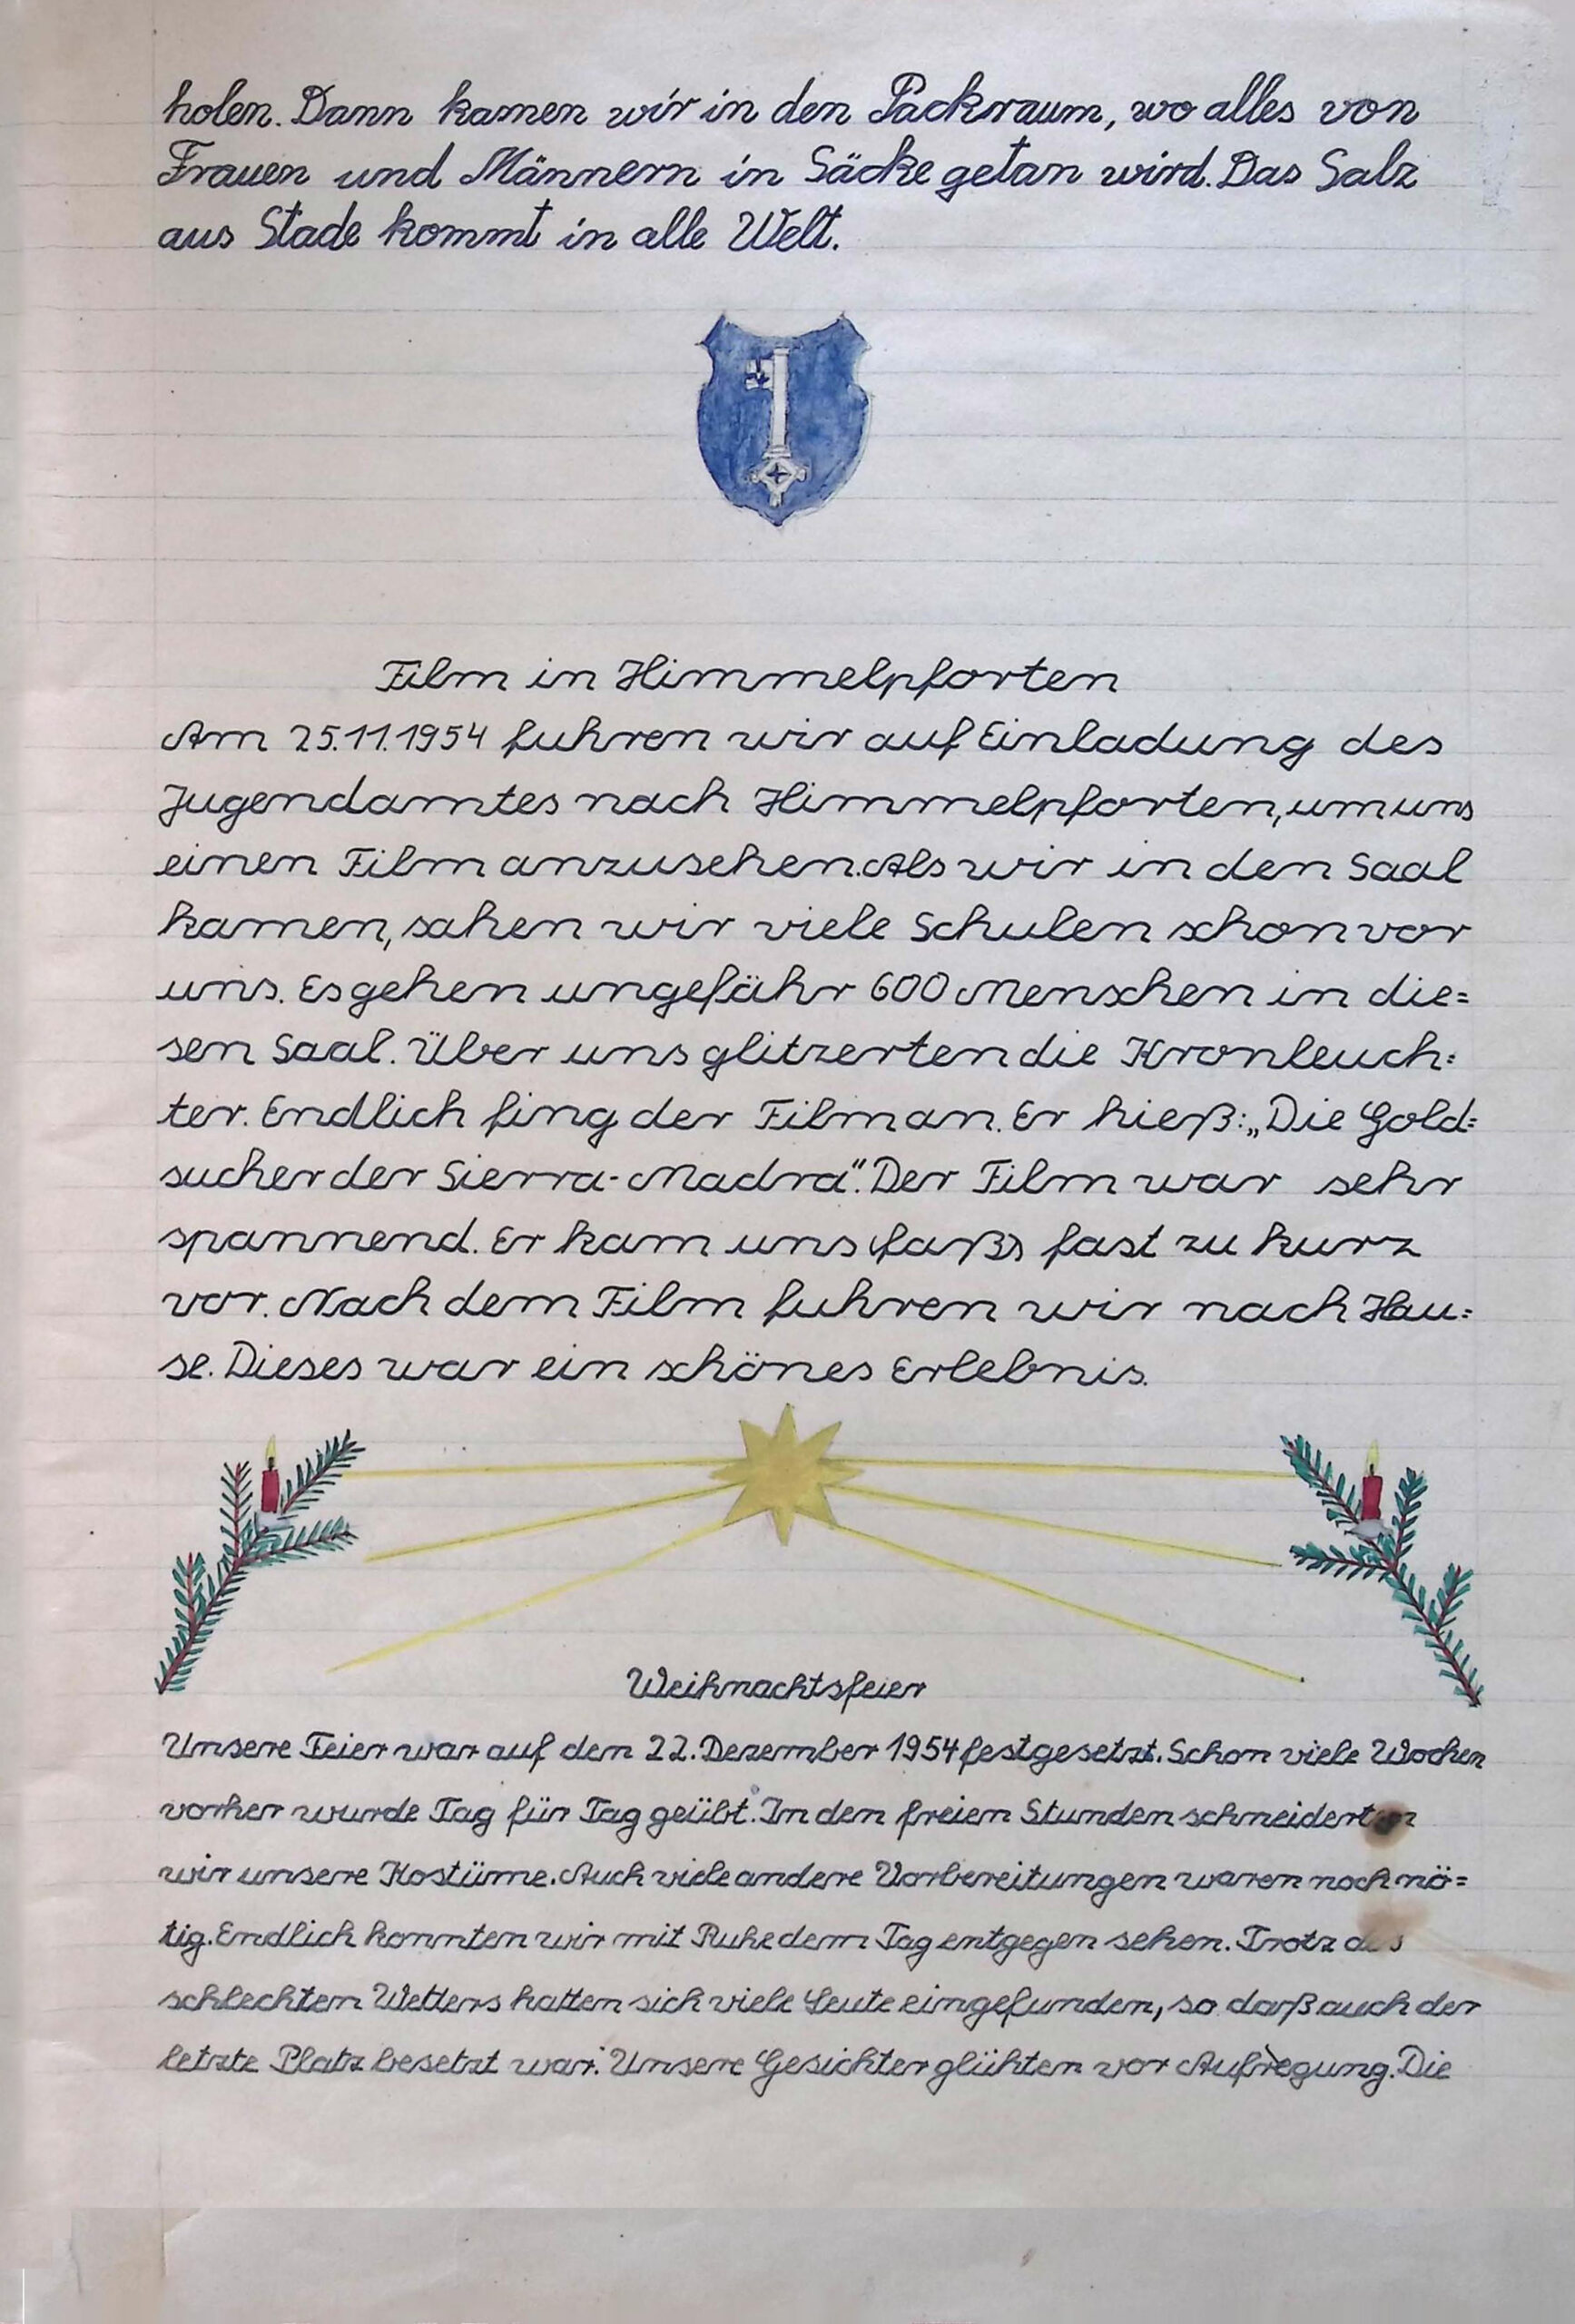 holen. Dann kamen wir in den Packraum, wo alles von
Frauen und Männern in Säcke getan wird. Das Salz
aus Stade kommt in alle Welt.
Film in Himmelpforten
Am 25.11.1954 fuhren wir auf Einladung des
Jugendamtes nach Himmelpforten, um uns
einen Film anzusehen. Als wir in den Saal
kamen, sahen wir viele Schulen schon vor
uns. Es gehen ungefähr 600 Menschen in die=
sen Saal. Über uns glitzerten die Kronleuch=
ter. Endlich fing der Film an. Er hieß: „Die Gold=
sucher der Sierra-Madra". Der Film war sehr
spannend. Er kam uns (faßs) fast zu kurz
vor. Nach dem Film fuhren wir nach Hau=
se. Dieses war ein schönes Erlebnis.
Weihnachtsfeier
Unsere Feier war auf den 22. Dezember 1954 festgesetzt. Schon viele Wochen
vorher wurde Tag für Tag geübt. In den freien Stunden schneiderten
wir unsere Kostüme. Auch viele andere Vorbereitungen waren noch nö=
tig. Endlich konnten wir mit Ruhe dem Tag entgegen sehen. Trotz des
schlechten Wetters hatten sich viele Leute eingefunden, so daß auch der
letzte Platz besetzt war. Unsere Gesichter glühten vor Aufregung. Die